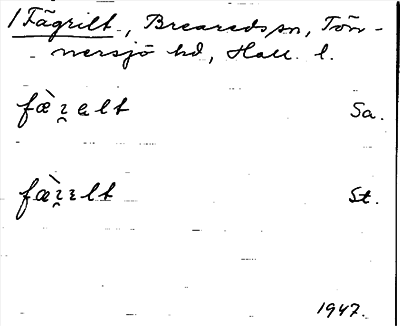 1 Fägrilt, Breareds sn, Tön-
nersjö hd, Hall. l.
fæ̀ɀ̯ɐlt Sa.
fæ̀ɀ̯ɛlt St.
1947.